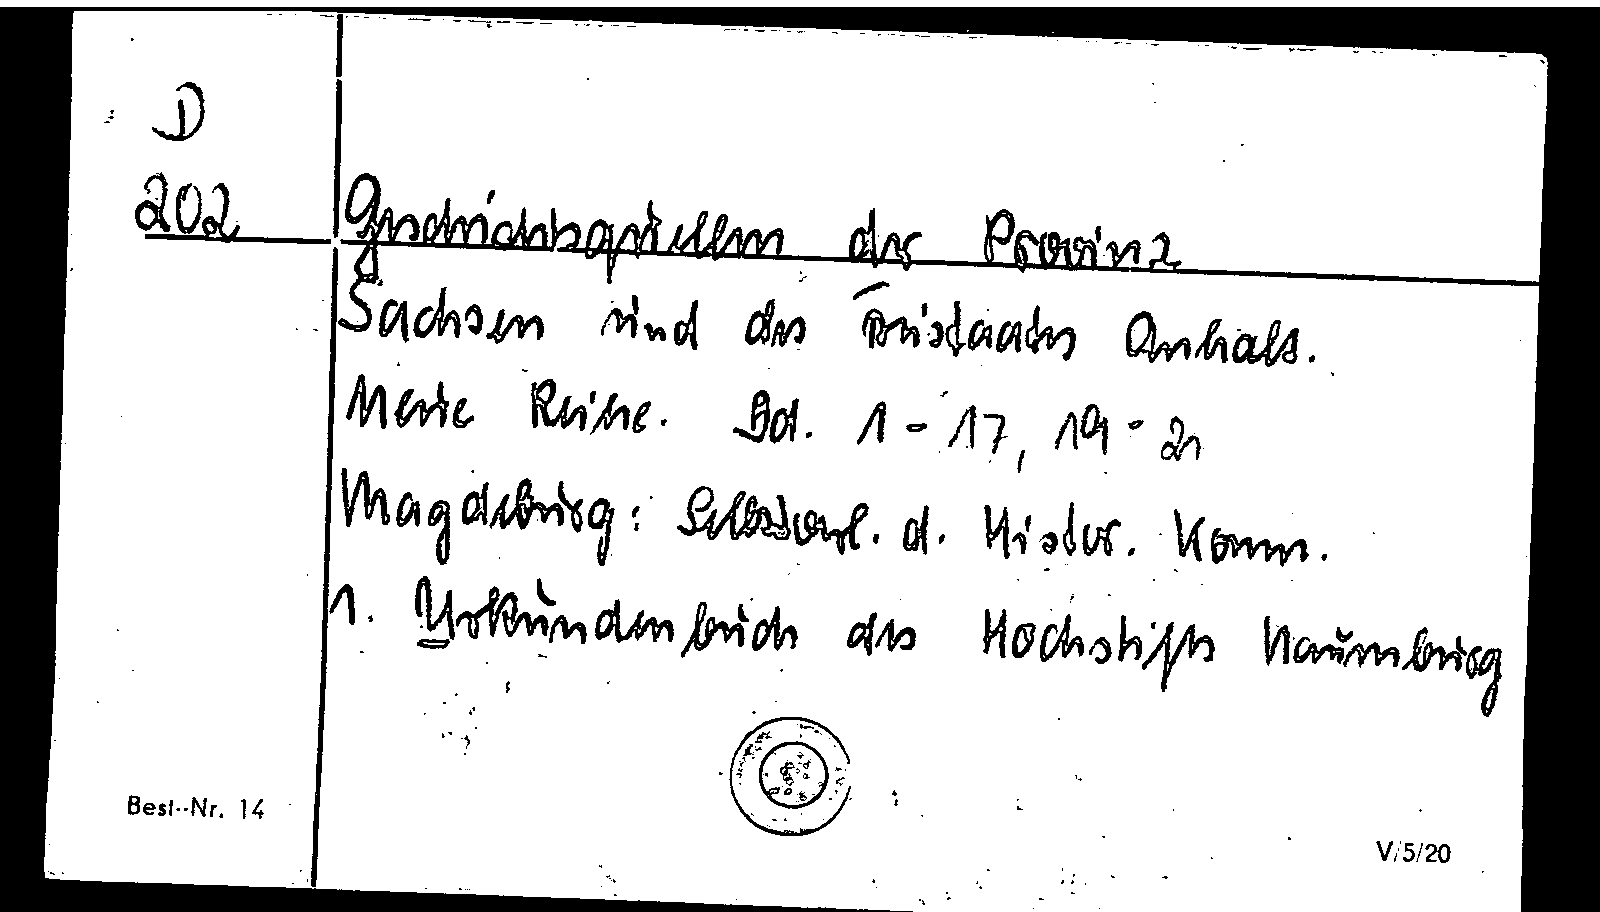 D
202
Geschichtsquellen der Provinz
Sachsen und des Freistaates Anhalt.
Neue Reihe. Bd. 1-17, 19-21
Magdeburg: Selbstverl. d. Histor. Komm.
1. Urkundenbuch des Hochstifts Naumburg
Best.-Nr. 14
V/5/20